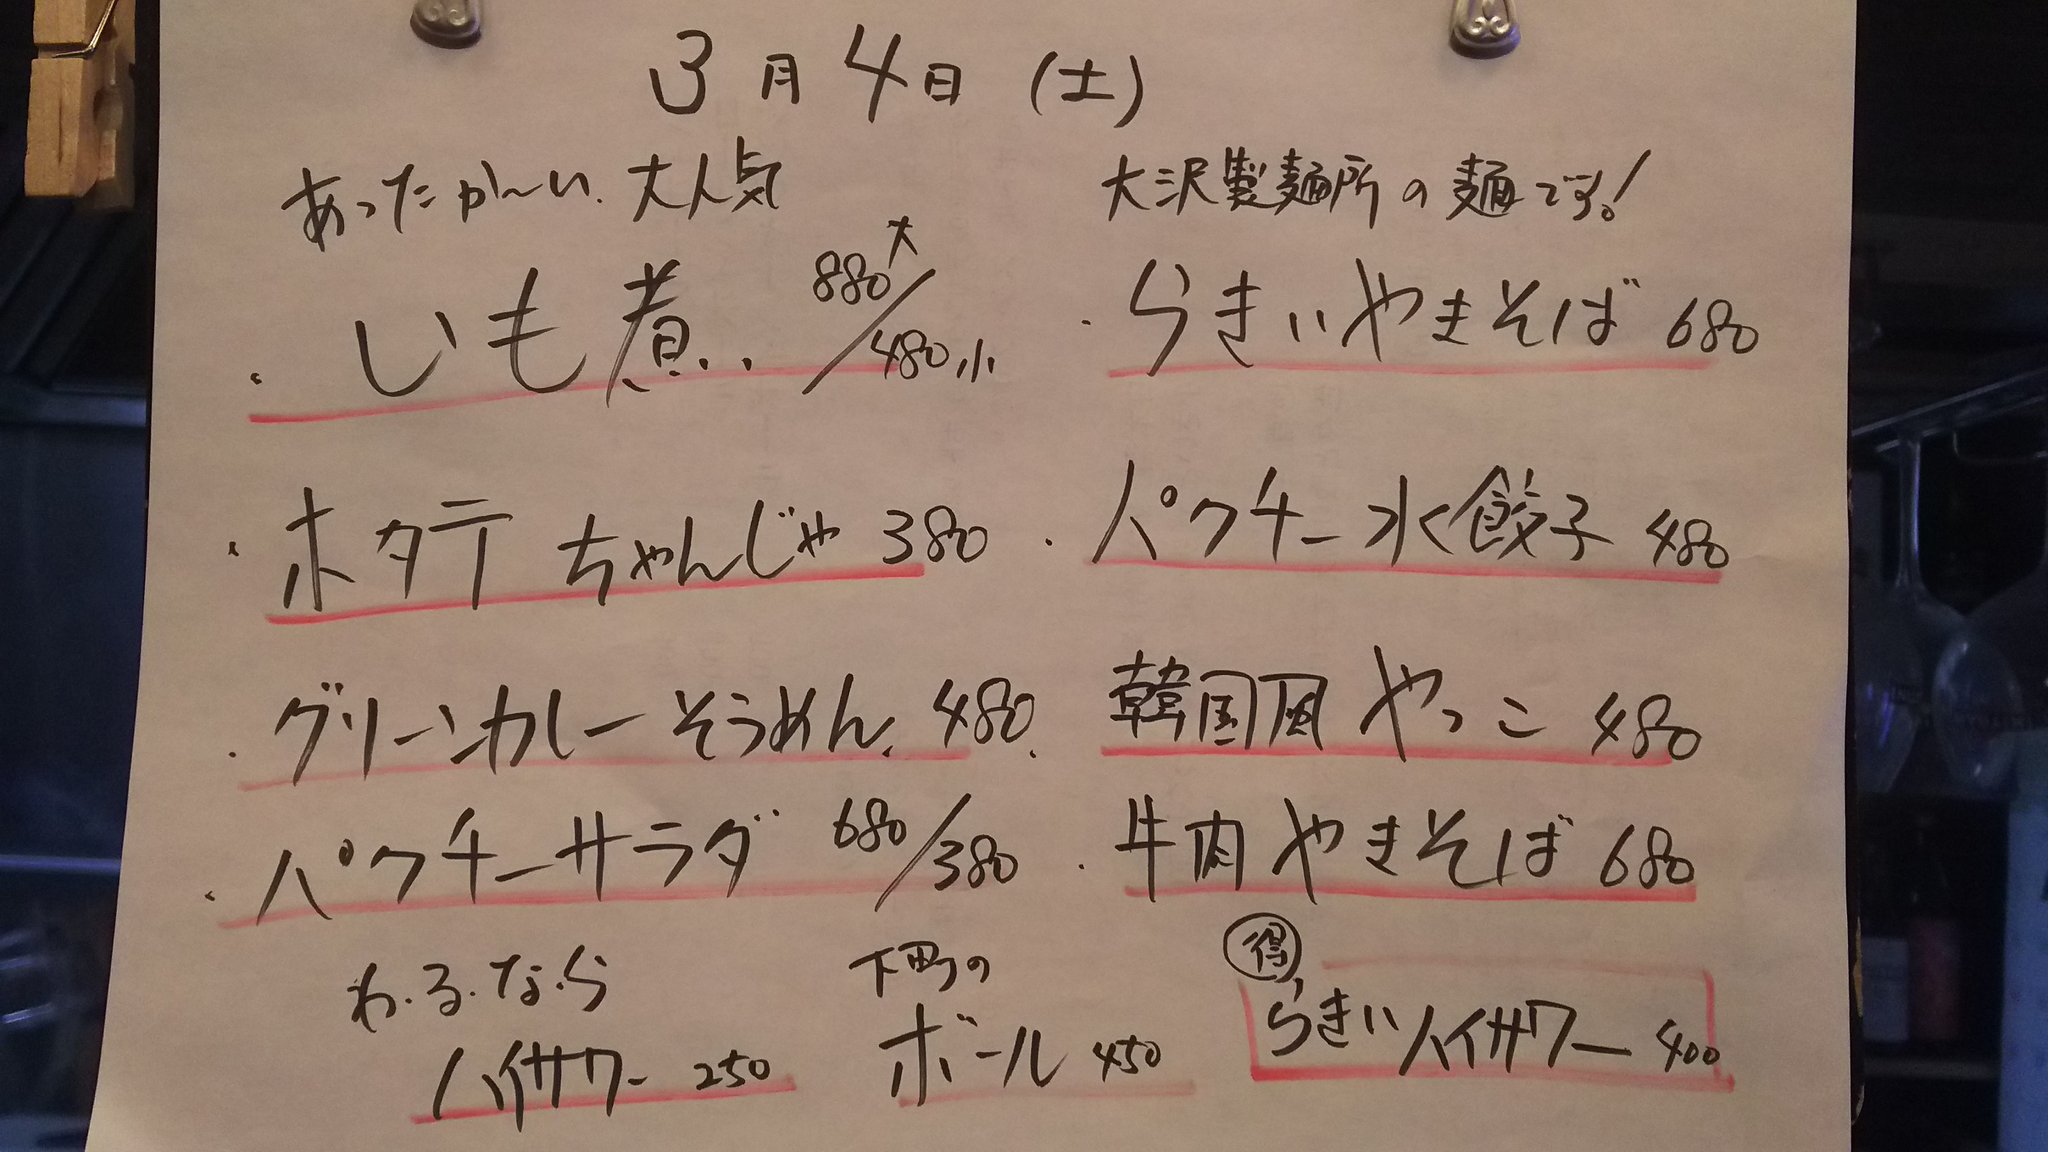 3月4日(土)
あったかーい、大人気
・いも煮.. 880大/480小
・ホタテちゃんじゃ 380
・グリーンカレーそうめん、480
・パクチーサラダ 680/380
大沢製麺所の麺です!
・らきいやきそば 680
・パクチー水餃子 480
・韓国風やっこ 480
・牛肉やきそば 680
わ・る・な・ら
ハイサワー 250
下町の
ボール 450
得
らきいハイサワー 400